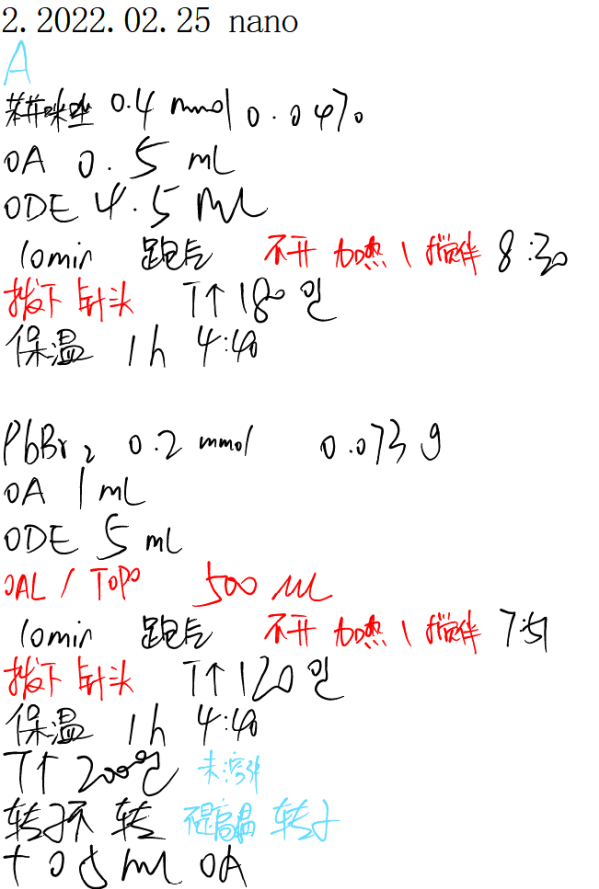 2.2022.02.25 nano
A
苯并咪唑 0.4 mmol 0.0470
OA 0.5 mL
ODE 4.5 mL
10min 跑气 不开 加热 \ 搅拌 8:30
拔下针头 T↑180
保温 1h 4:40
PbBr2 0.2 mmol 0.073 g
OA 1 mL
ODE 5 mL
OAL / TOPO 500
10min 跑气 不开 加热 \ 搅拌 7:51
拔下针头 T↑120
保温 1h 4:40
T↑ 200
转子不转 高温 转子
+ 0.5 mL OA